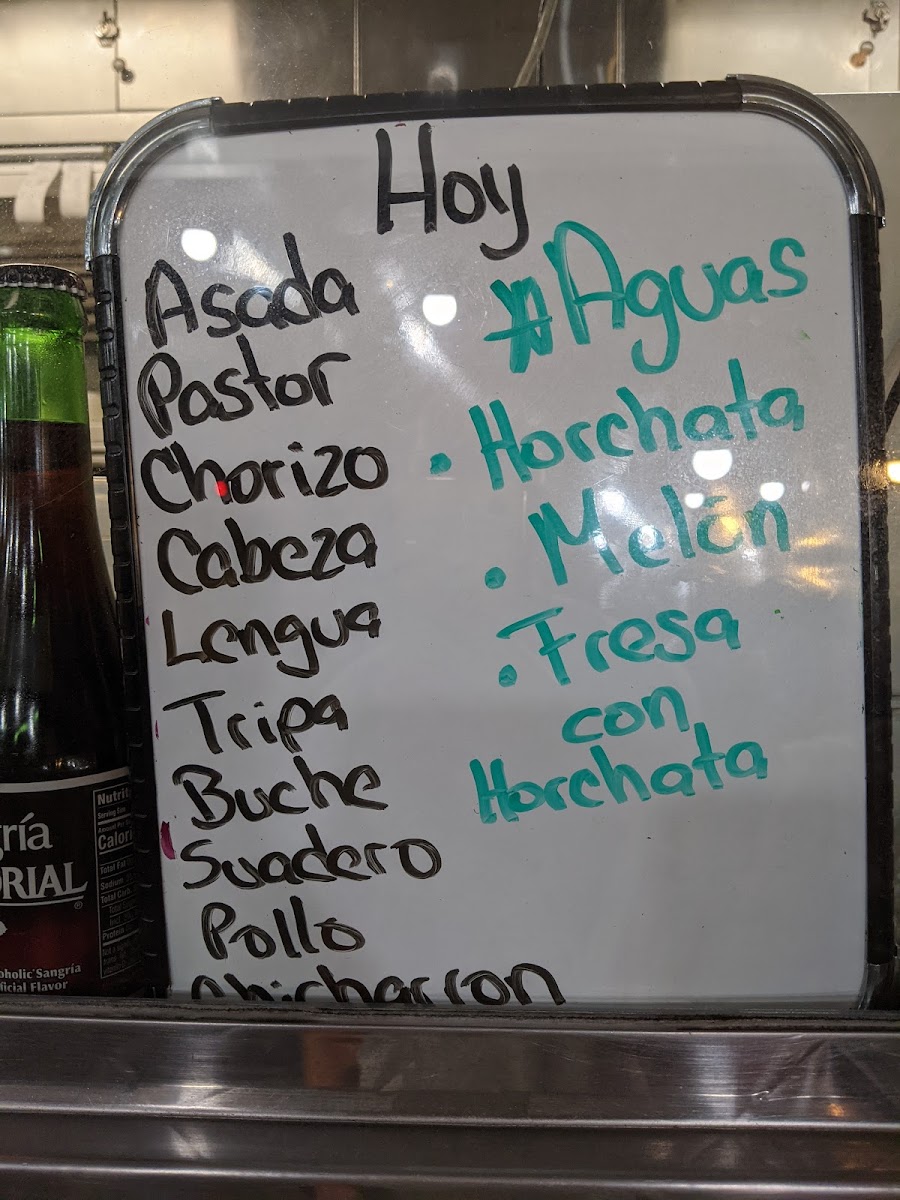 Hoy
Asada
Pastor
Chorizo
Cabeza
Lengua
Tripa
Buche
Suadero
Pollo
Chicharron
#Aguas
• Horchata
• Melón
• Fresa
con
Horchata
ría
ORIAL
®
oholic Sangría
ficial Flavor
Nutrit
Calori
Total Fat
Sodium
Total Carb
Protein